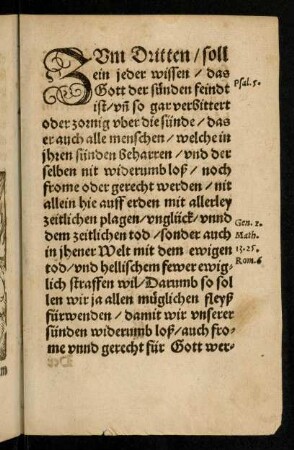 ZVm Dritten / soll
ein jeder wissen / das
Gott der sünden feindt
ist / vñ so gar verbittert
oder zornig vber die sünde / das
er auch alle menschen / welche in
jhren sünden beharren / vnd der
selben nit widerumb loß / noch
frome oder gerecht werden / nit
allein hie auff erden mit allerley
zeitlichen plagen / vnglück / vnnd
dem zeitlichen tod / sonder auch
in jhener Welt mit dem ewigen
tod / vnd hellischem fewer ewig-
lich straffen wil / Darumb so sol
len wir ja allen müglichen fleyß
fürwenden / damit wir vnserer
sünden widerumb loß / auch fro-
me vnnd gerecht für Gott wer-
Psal. 5.
Gen. 2.
Math.
13. 25.
Rom. 6